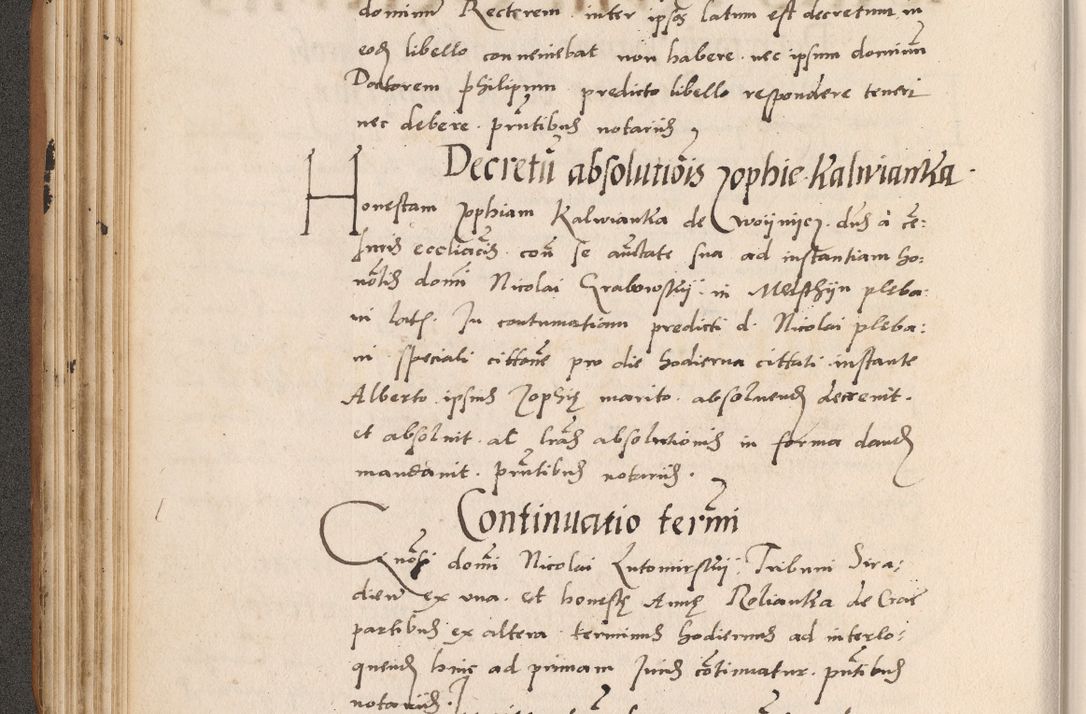 dominum Rectorem inter ipsos latum est decretum in
eodem libello conveniebat non habere nec ipsum dominum
Doctorem Philipum predicto libello respondere teneri
nec debere. pñtibus notariis
Decretũ absolutiõis Zophie Kalwianka
Honestam Zophiam Kalwianka de Woÿnÿcz. dñs à cẽ:
suris eccliacis. coñ se auctate sua ad instantiam ho:
nõlis domi Nicolai Grabowskÿ in Melsthÿn pleba:
ni lat. In contumatiam predicti d. Nicolai pleba:
ni speciali cittaõne pro die hodierna cittati instante
Alberto ipsius Zophię marito. absolvend decrevit.
et absolvit. ac lrãs absolutionis in forma dand
mandavit. pñtibus notariis.
Continuatio termi
Gñosi domi Nicolai Lutomirskÿ Tribuni Sira:
dien ex una. et honestę Annę Rolianka de Crac
partibus ex altera. terminus hodiernus ad interlo:
quend hinc ad primam Juris cõtinuatur. pñtibus
notariis.